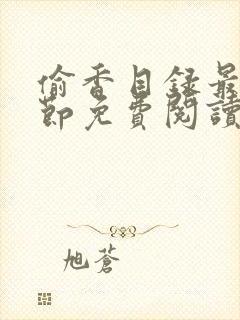 偷香目錄最
節免費閱讀
旭蒼